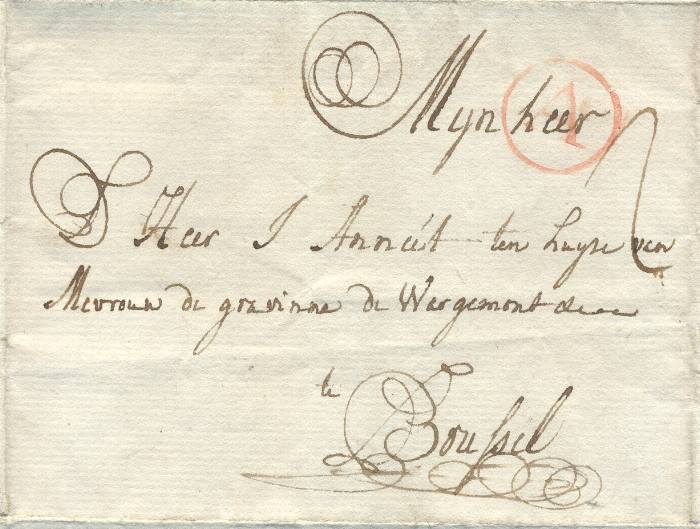 Mynheer
A
D Heer J Anneét ten huyse van
Mevrouw de gravinne de Wargemont &c
te Broussel